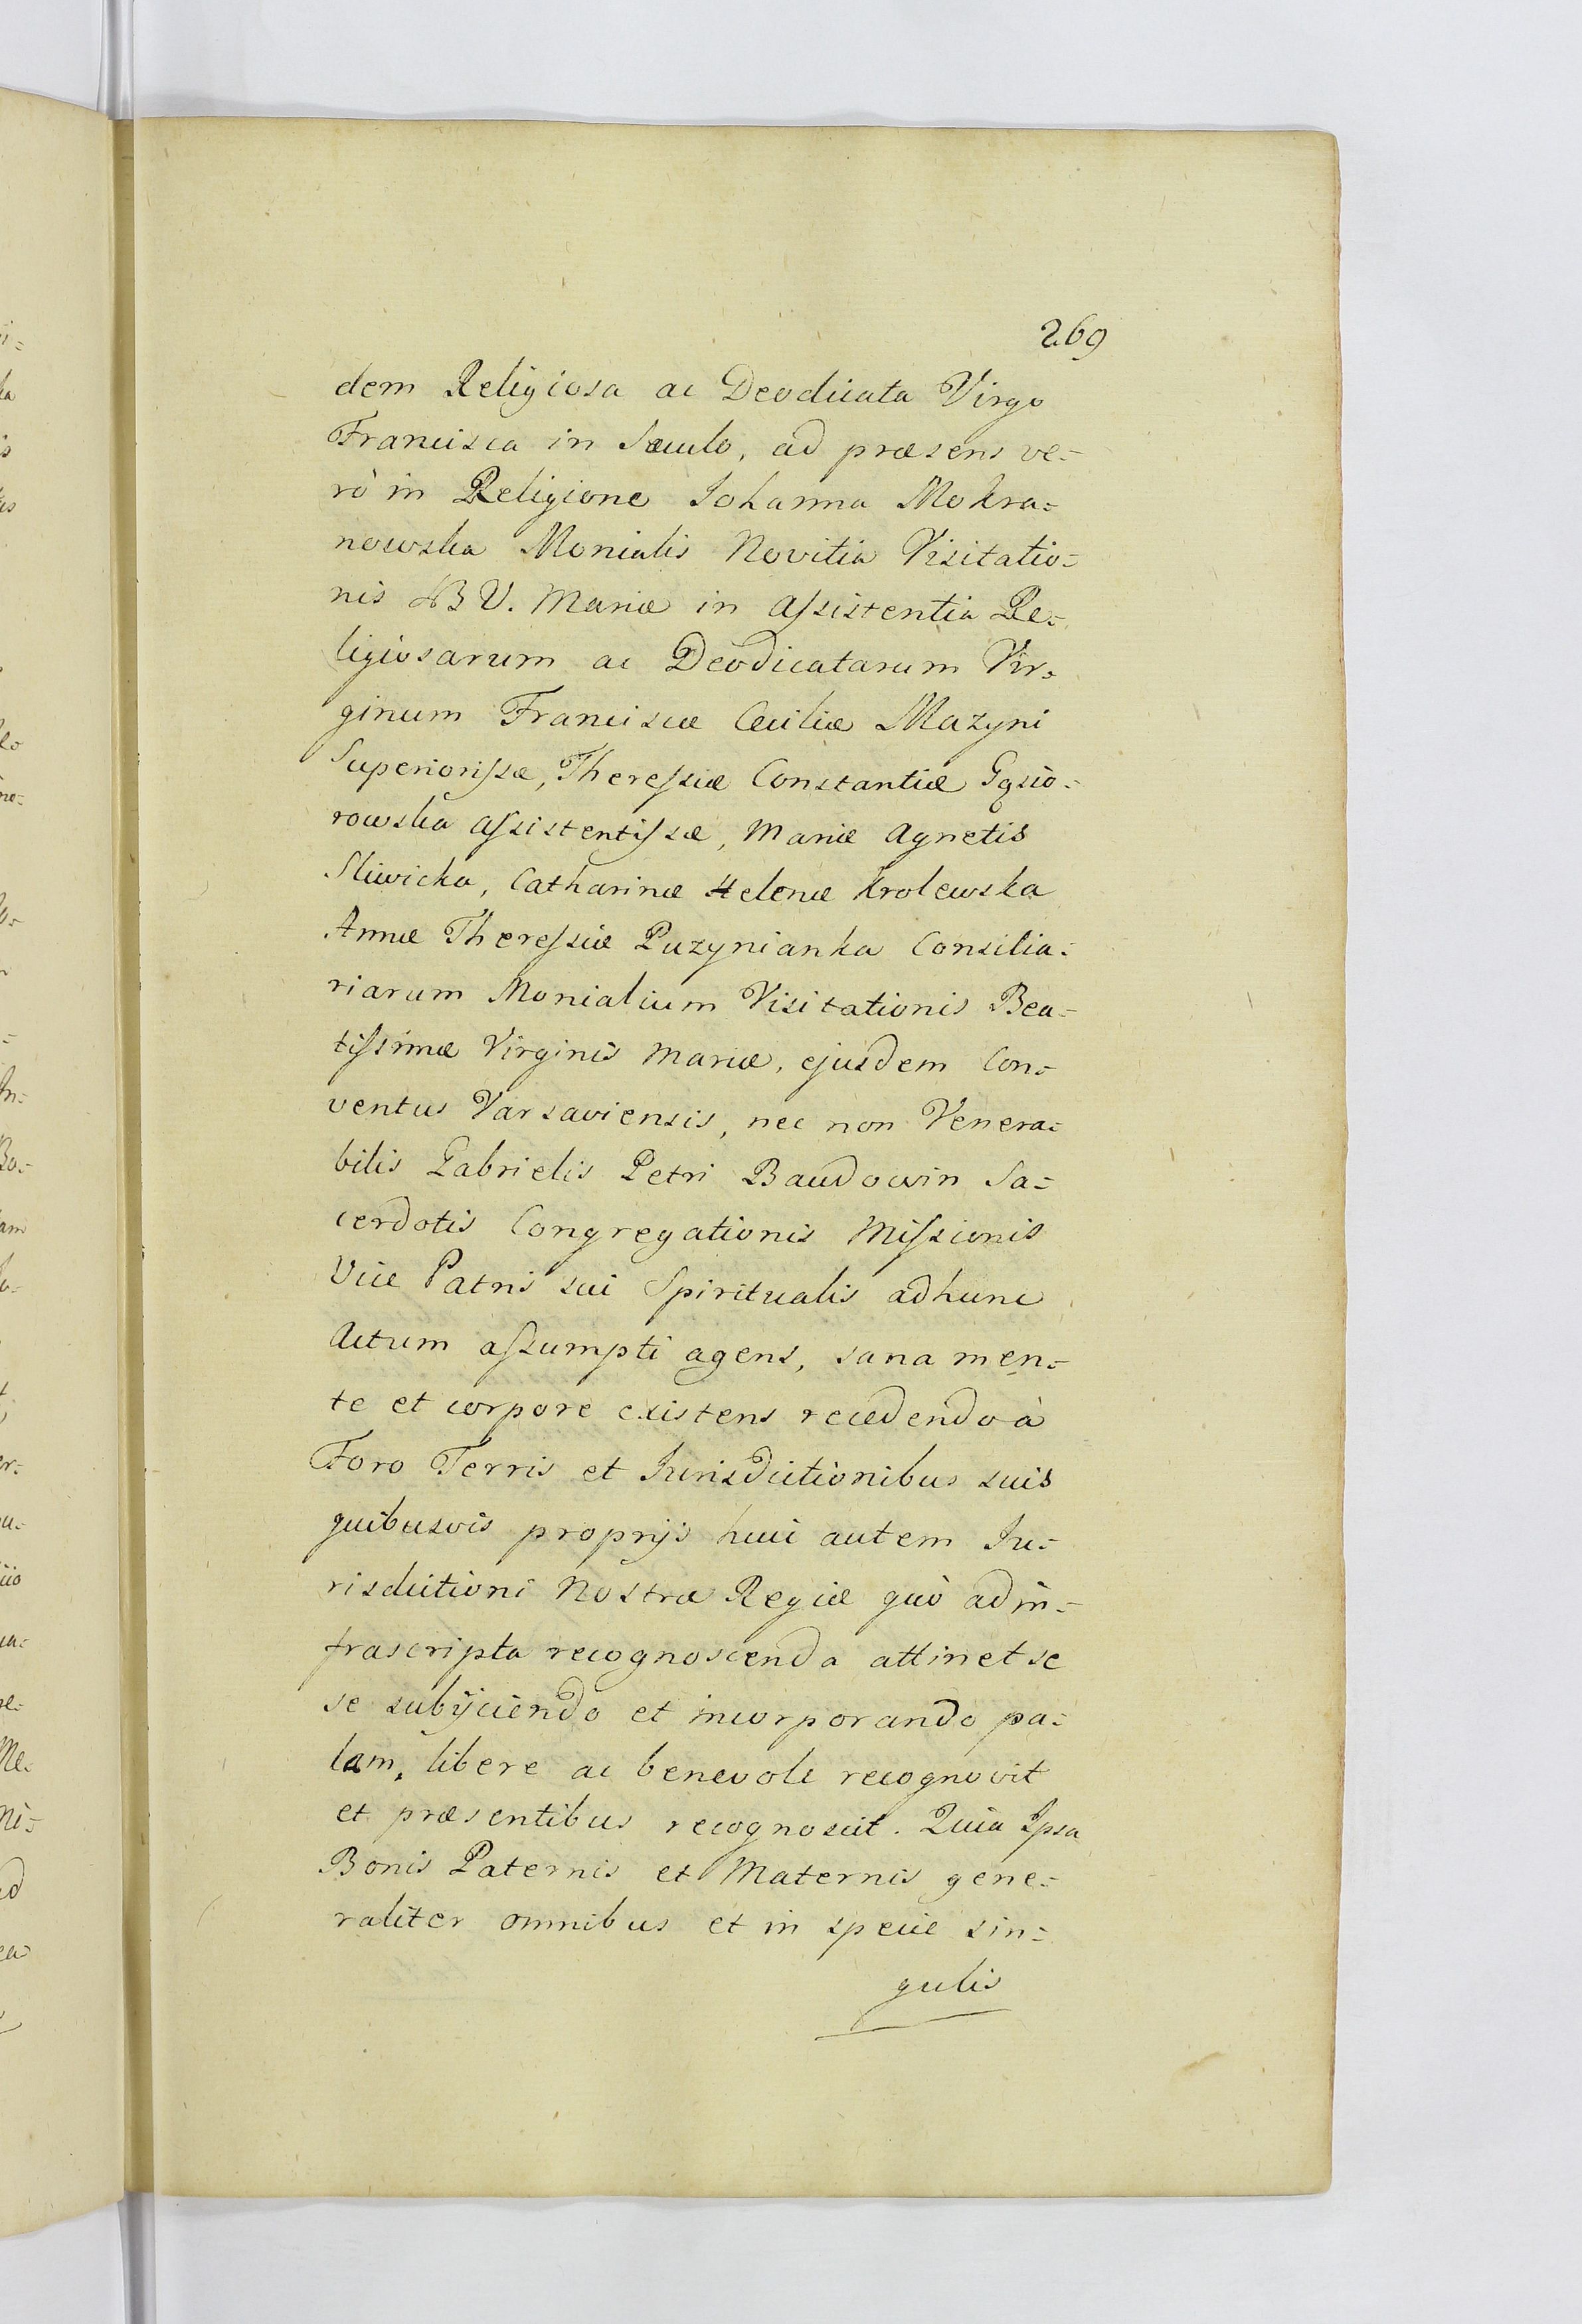 269
dem Religiosa ac Deodicata Virgo
Francisca in Sæculo, ad præsens ve=
rò in Religione Johanna Mokra=
nowska Monialis Novitia Visitatio=
nis B V. Mariæ in Assistentia Re=
ligiosarum ac Deodicatarum Vir=
ginum Franciscæ Cæciliæ Mazyni
Superiorissæ, Theressiæ Constantiæ Gąsio=
rowska Assistentissæ, Mariæ Agnetis
Sliwicka, Catharinæ Helenæ Krolewska
Annæ Theressiæ Puzynianka Consilia=
riarum Monialium Visitationis Bea=
tissimæ Virginis Mariæ, ejusdem Con=
ventus Varsaviensis, nec non Venera=
bilis Gabrielis Petri Baudowin Sa=
cerdotis Congregationis Missionis
Vice Patris sui Spiritualis adhunc
Actum assumpti agens, sana men=
te et corpore existens recedendo à
Foro Terris et Jurisdictionibus suis
quibusvis proprijs huic autem Ju=
risdictioni Nostræ Regiæ quò ad in=
frascripta recognoscenda attinet se
se subijciendo et incorporando pa=
lam, libere ac benevole recognovit
et præsentibus recognoscit. Quia Ipsa
Bonis Paternis et Maternis gene=
raliter omnibus et in specie sin=
gulis